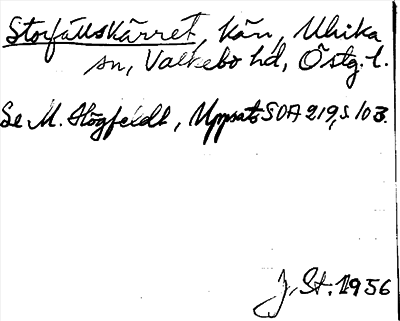 Storfällskärret, kärr, Ulrika
sn, Valkebo hd, Östg. l.
Se M. Högfeldt, Uppsats SOA 219, s. 103.
J. St. 1956